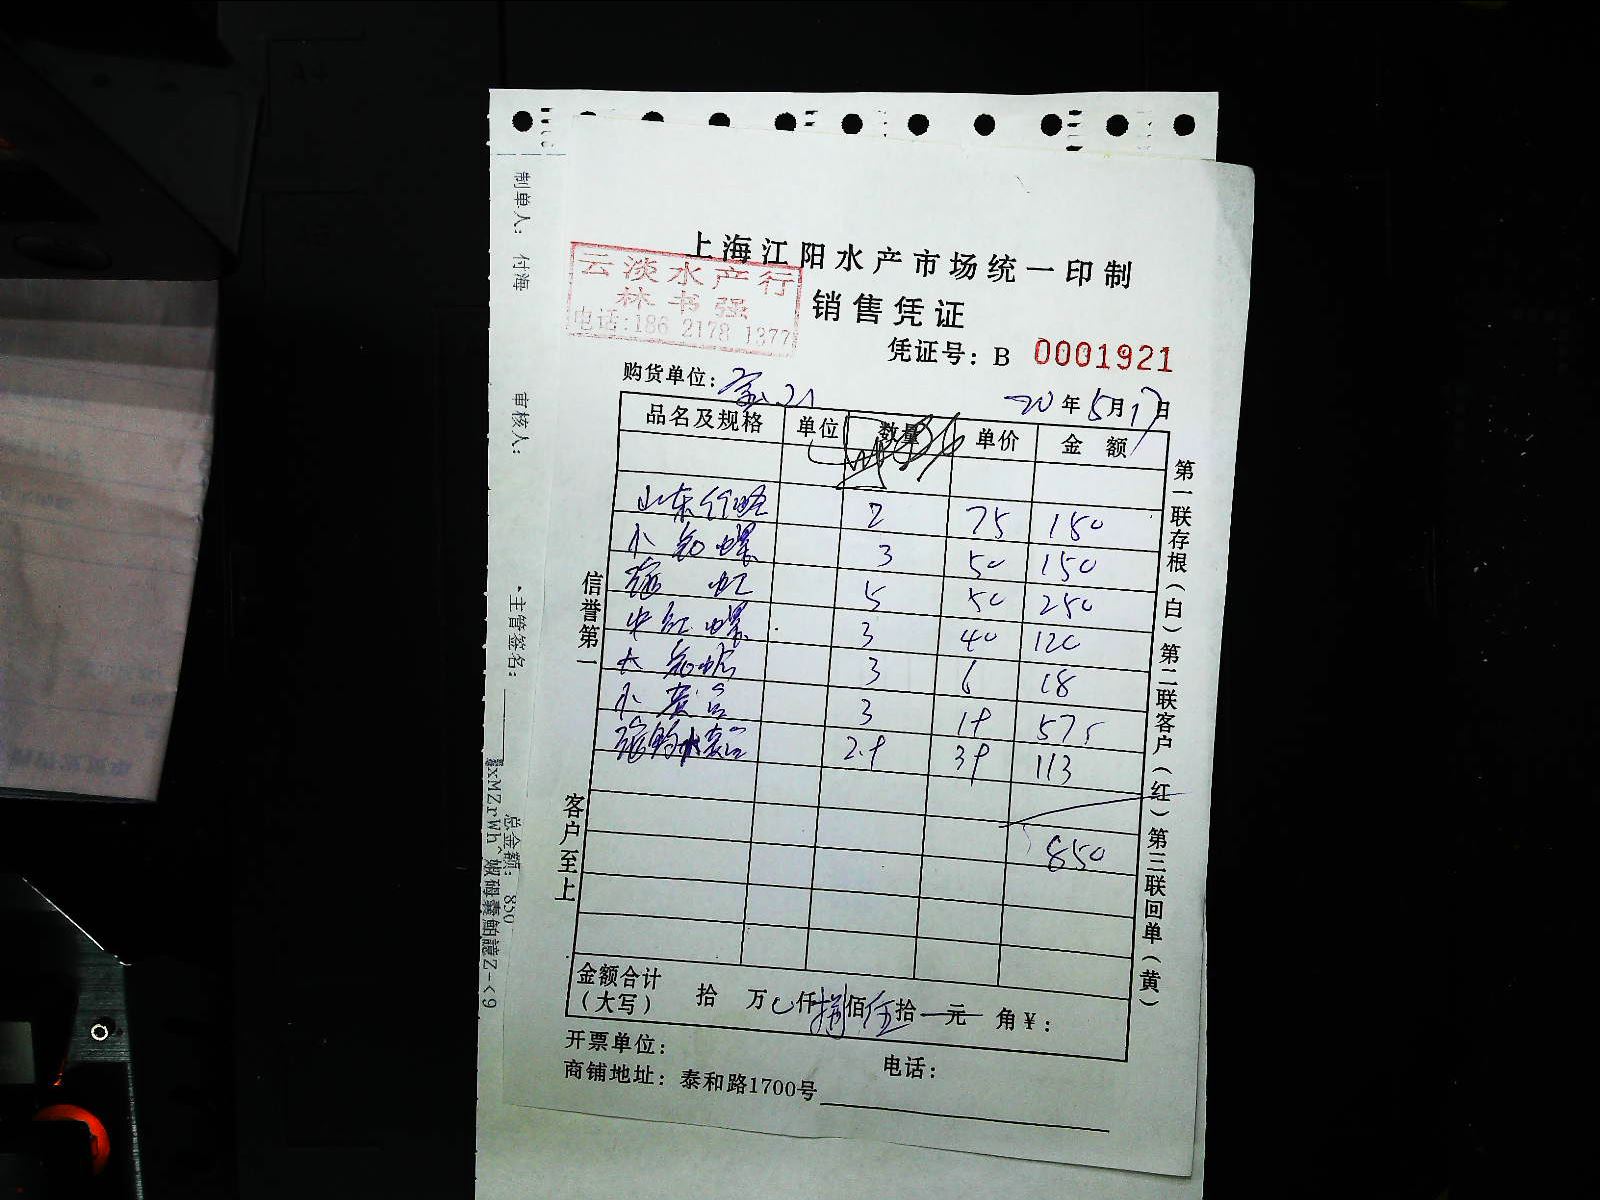 上海江阳水产市场统一印制
云淡水产行
林书强
电话:186 2178 1377
销售凭证
凭证号: B 0001921
购货单位:
20年5月17日
品名及规格 单位 数量 单价 金额
山东 2 75 150
小 螺 3 50 150
5 50 250
中红螺 3 40 120
大 3 6 18
小黄 3 19 575
2.9 39 113
850
金额合计
(大写) 拾 万 仟捌佰伍拾 元 角¥:
开票单位: 电话:
商铺地址: 泰和路1700号
信誉第一 客户至上
第一联存根(白)第二联客户(红)第三联回单(黄)
制单人: 付海 审核人: 主管签名: 总金额: 850